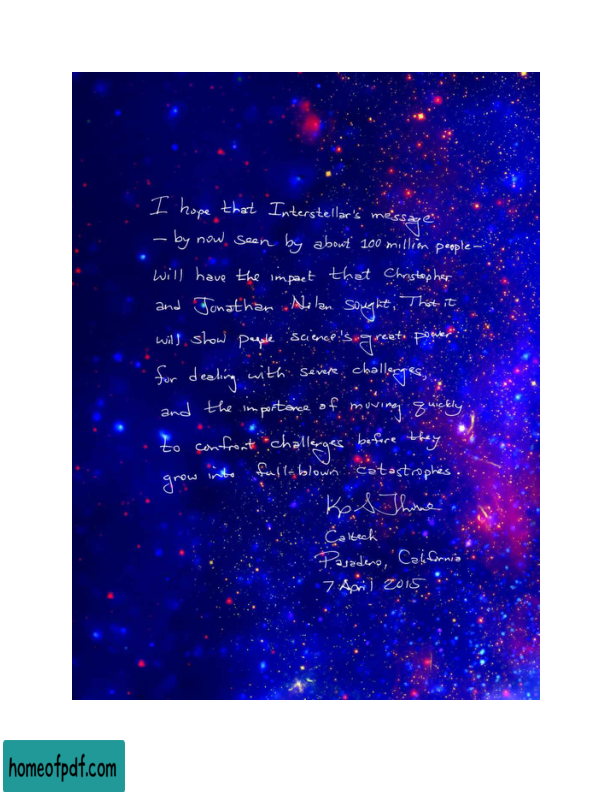 I hope that Interstellar's message
– by now seen by about 100 million people –
will have the impact that Christopher
and Jonathan Nolan sought, That it
will show people science's great power
for dealing with severe challenges,
and the importance of moving quickly
to confront challenges before they
grow into full-blown catastrophes.
Kip S Thorne
Caltech
Pasadena, California
7 April 2015
homeofpdf.com